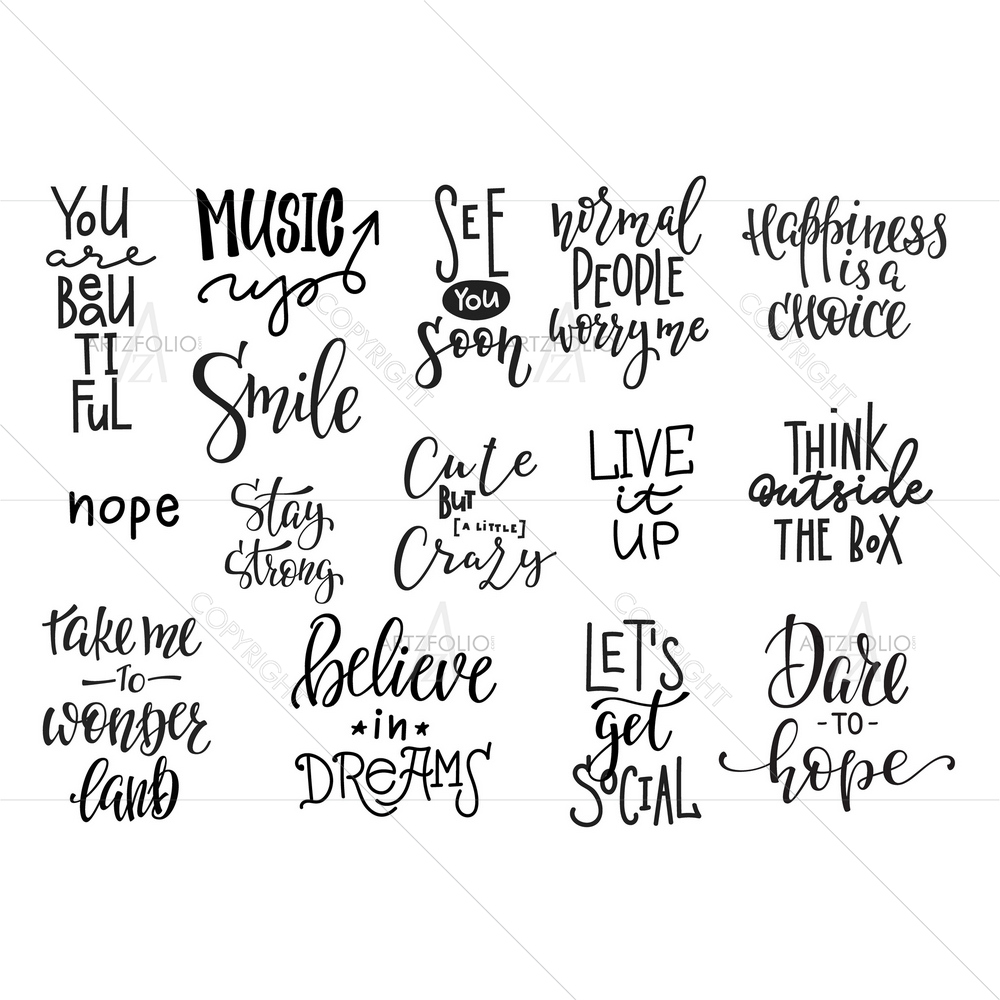 You
are
BeaU
TI
FUL
MUSIC
up
SEE
You
Soon
normal
PEOPLE
worry me
Happiness
is a
CHOICE
Smile
nope
Stay
Strong
Cute
BUT
[A LITTLE]
Crazy
LIVE
it
UP
THINK
outside
THE BOX
take me
—TO—
wonder
land
believe
*in*
DREAMS
LET'S
get
SOCIAL
Dare
-TO-
hope
ARTZFOLIO
ARTZFOLIO
ARTZFOLIO
ARTZFOLIO
COPYRIGHT
COPYRIGHT
COPYRIGHT
COPYRIGHT